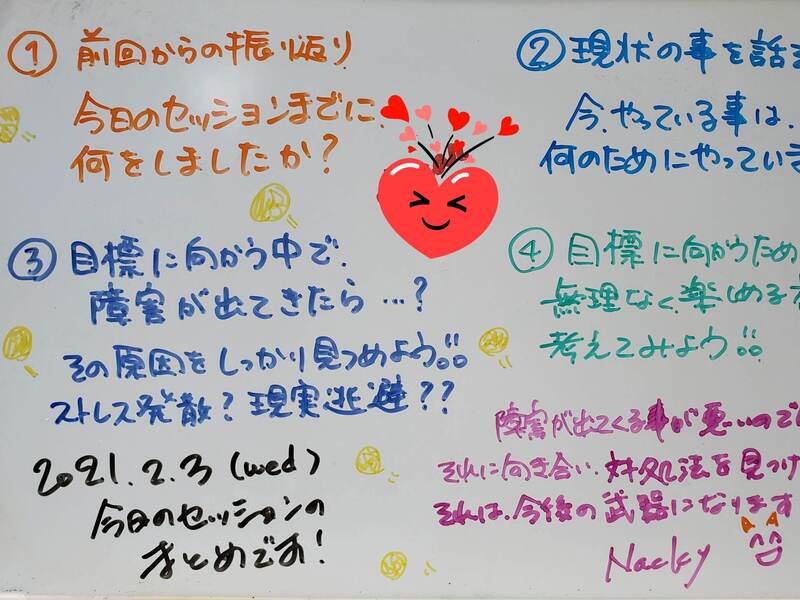 ① 前回からの振り返り
今日のセッションまでに、
何をしましたか?
② 現状の事を話
今、やっている事は、
何のためにやってい
③ 目標に向かう中で、
障害が出てきたら…?
その原因をしっかり見つめよう。
ストレス発散?現実逃避??
④ 目標に向かうため
無理なく、楽しめる
考えてみよう
障害が出てくる事が悪いので
それに向き合い、対処法を見つけ
それは、今後の武器になります
Nacky
2021.2.3 (wed)
今日のセッションの
まとめです!